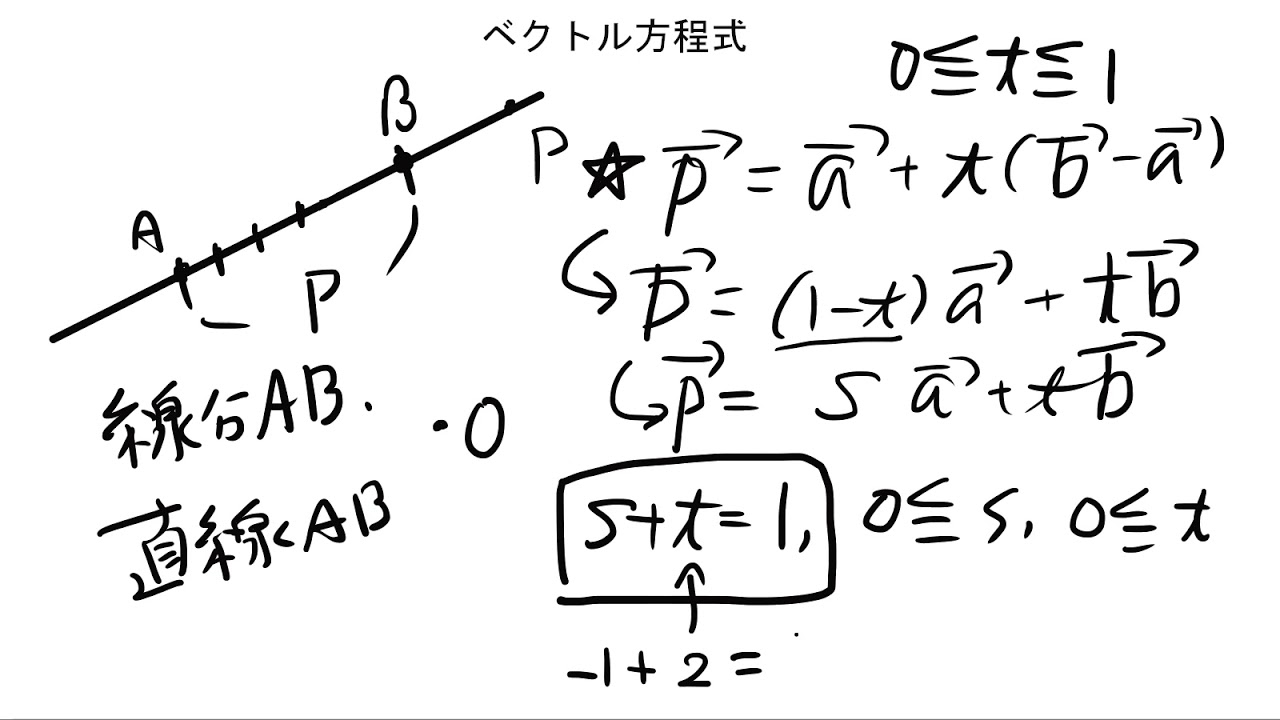 ベクトル方程式
0≦t≦1
A
B
P
P
☆ p→ = a→ + t(b→ - a→)
p→ = (1-t)a→ + tb→
p→ = sa→ + tb→
線分AB.
・O
直線AB
s+t=1, 0≦s, 0≦t
-1+2=